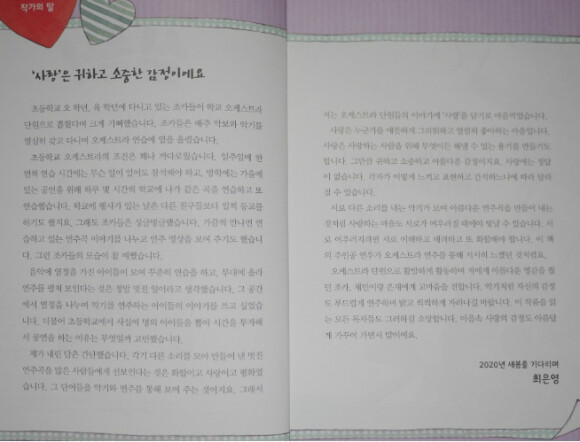 작가의 말
'사랑'은 귀하고 소중한 감정이에요
초등학교 오 학년, 육 학년에 다니고 있는 조카들이 학교 오케스트라
단원으로 뽑혔다며 크게 기뻐했습니다. 조카들은 매주 악보와 악기를
열심히 갖고 다니며 오케스트라 연습에 열을 올렸습니다.
초등학교 오케스트라의 조건은 꽤나 까다로웠습니다. 일주일에 한
번씩 연습 시간에는 무슨 일이 있어도 참석해야 하고, 방학에는 가을에
있는 공연을 위해 하루 몇 시간씩 학교에 나가 같은 곡을 연습하고 또
연습했습니다. 학교에 행사가 있는 날은 다른 친구들보다 일찍 등교를
하기도 했지요. 그래도 조카들은 싱글벙글했습니다. 가끔씩 만나면 연
습하고 있는 연주곡 이야기를 나누고 연주 영상을 보여 주기도 했습니
다. 그런 조카들의 모습이 참 예뻤습니다.
음악에 열정을 가진 아이들이 모여 꾸준히 연습을 하고, 무대에 올라
연주를 펼쳐 보인다는 것은 정말 멋진 일이라고 생각했습니다. 그 공간
에서 열정을 나누며 악기를 연주하는 아이들의 이야기를 쓰고 싶었습
니다. 더불어 초등학교에서 사십여 명의 아이들을 뽑아 시간을 투자해
서 공연을 하는 이유는 무엇일까 고민했습니다.
제가 내린 답은 간단했습니다. 각기 다른 소리를 모아 만들어 낸 멋진
연주곡을 많은 사람들에게 선보인다는 것은 화합이고 사랑이고 평화였
습니다. 그 단어들을 악기와 연주를 통해 보여 주는 것이지요. 그래서
저는 오케스트라 단원들의 이야기에 '사랑'을 담기로 마음먹었습니다.
사랑은 누군가를 애틋하게 그리워하고 열렬히 좋아하는 마음입니다.
사랑은 사랑하는 사람을 위해 무엇이든 해낼 수 있는 용기를 만들기도
합니다. 그만큼 귀하고 소중하고 아름다운 감정이지요. 사랑에는 정답
이 없습니다. 각자가 어떻게 느끼고 표현하고 간직하느냐에 따라 달라
질 수 있습니다.
서로 다른 소리를 내는 악기가 모여 아름다운 연주곡을 만들어 내는
것처럼 사랑하는 마음도 서로가 어우러질 때에야 빛날 수 있습니다. 서
로 어우러지려면 서로 이해하고 배려하고 또 화합해야 합니다. 이 책
의 주인공 연우가 오케스트라 연주를 통해 서서히 느꼈던 것처럼요.
오케스트라 단원으로 활발하게 활동하며 저에게 아름다운 영감을 줬
던 조카, 채민이랑 은재에게 고마움을 전합니다. 악기처럼 자신의 감정
도 부드럽게 연주하며 밝고 씩씩하게 자라나길 바랍니다. 이 작품을 읽
는 모든 독자들도 그러하길 소망합니다. 마음속 사랑의 감정도 아름답
게 가꾸어 가면서 말이에요.
2020년 새봄을 기다리며
최은영